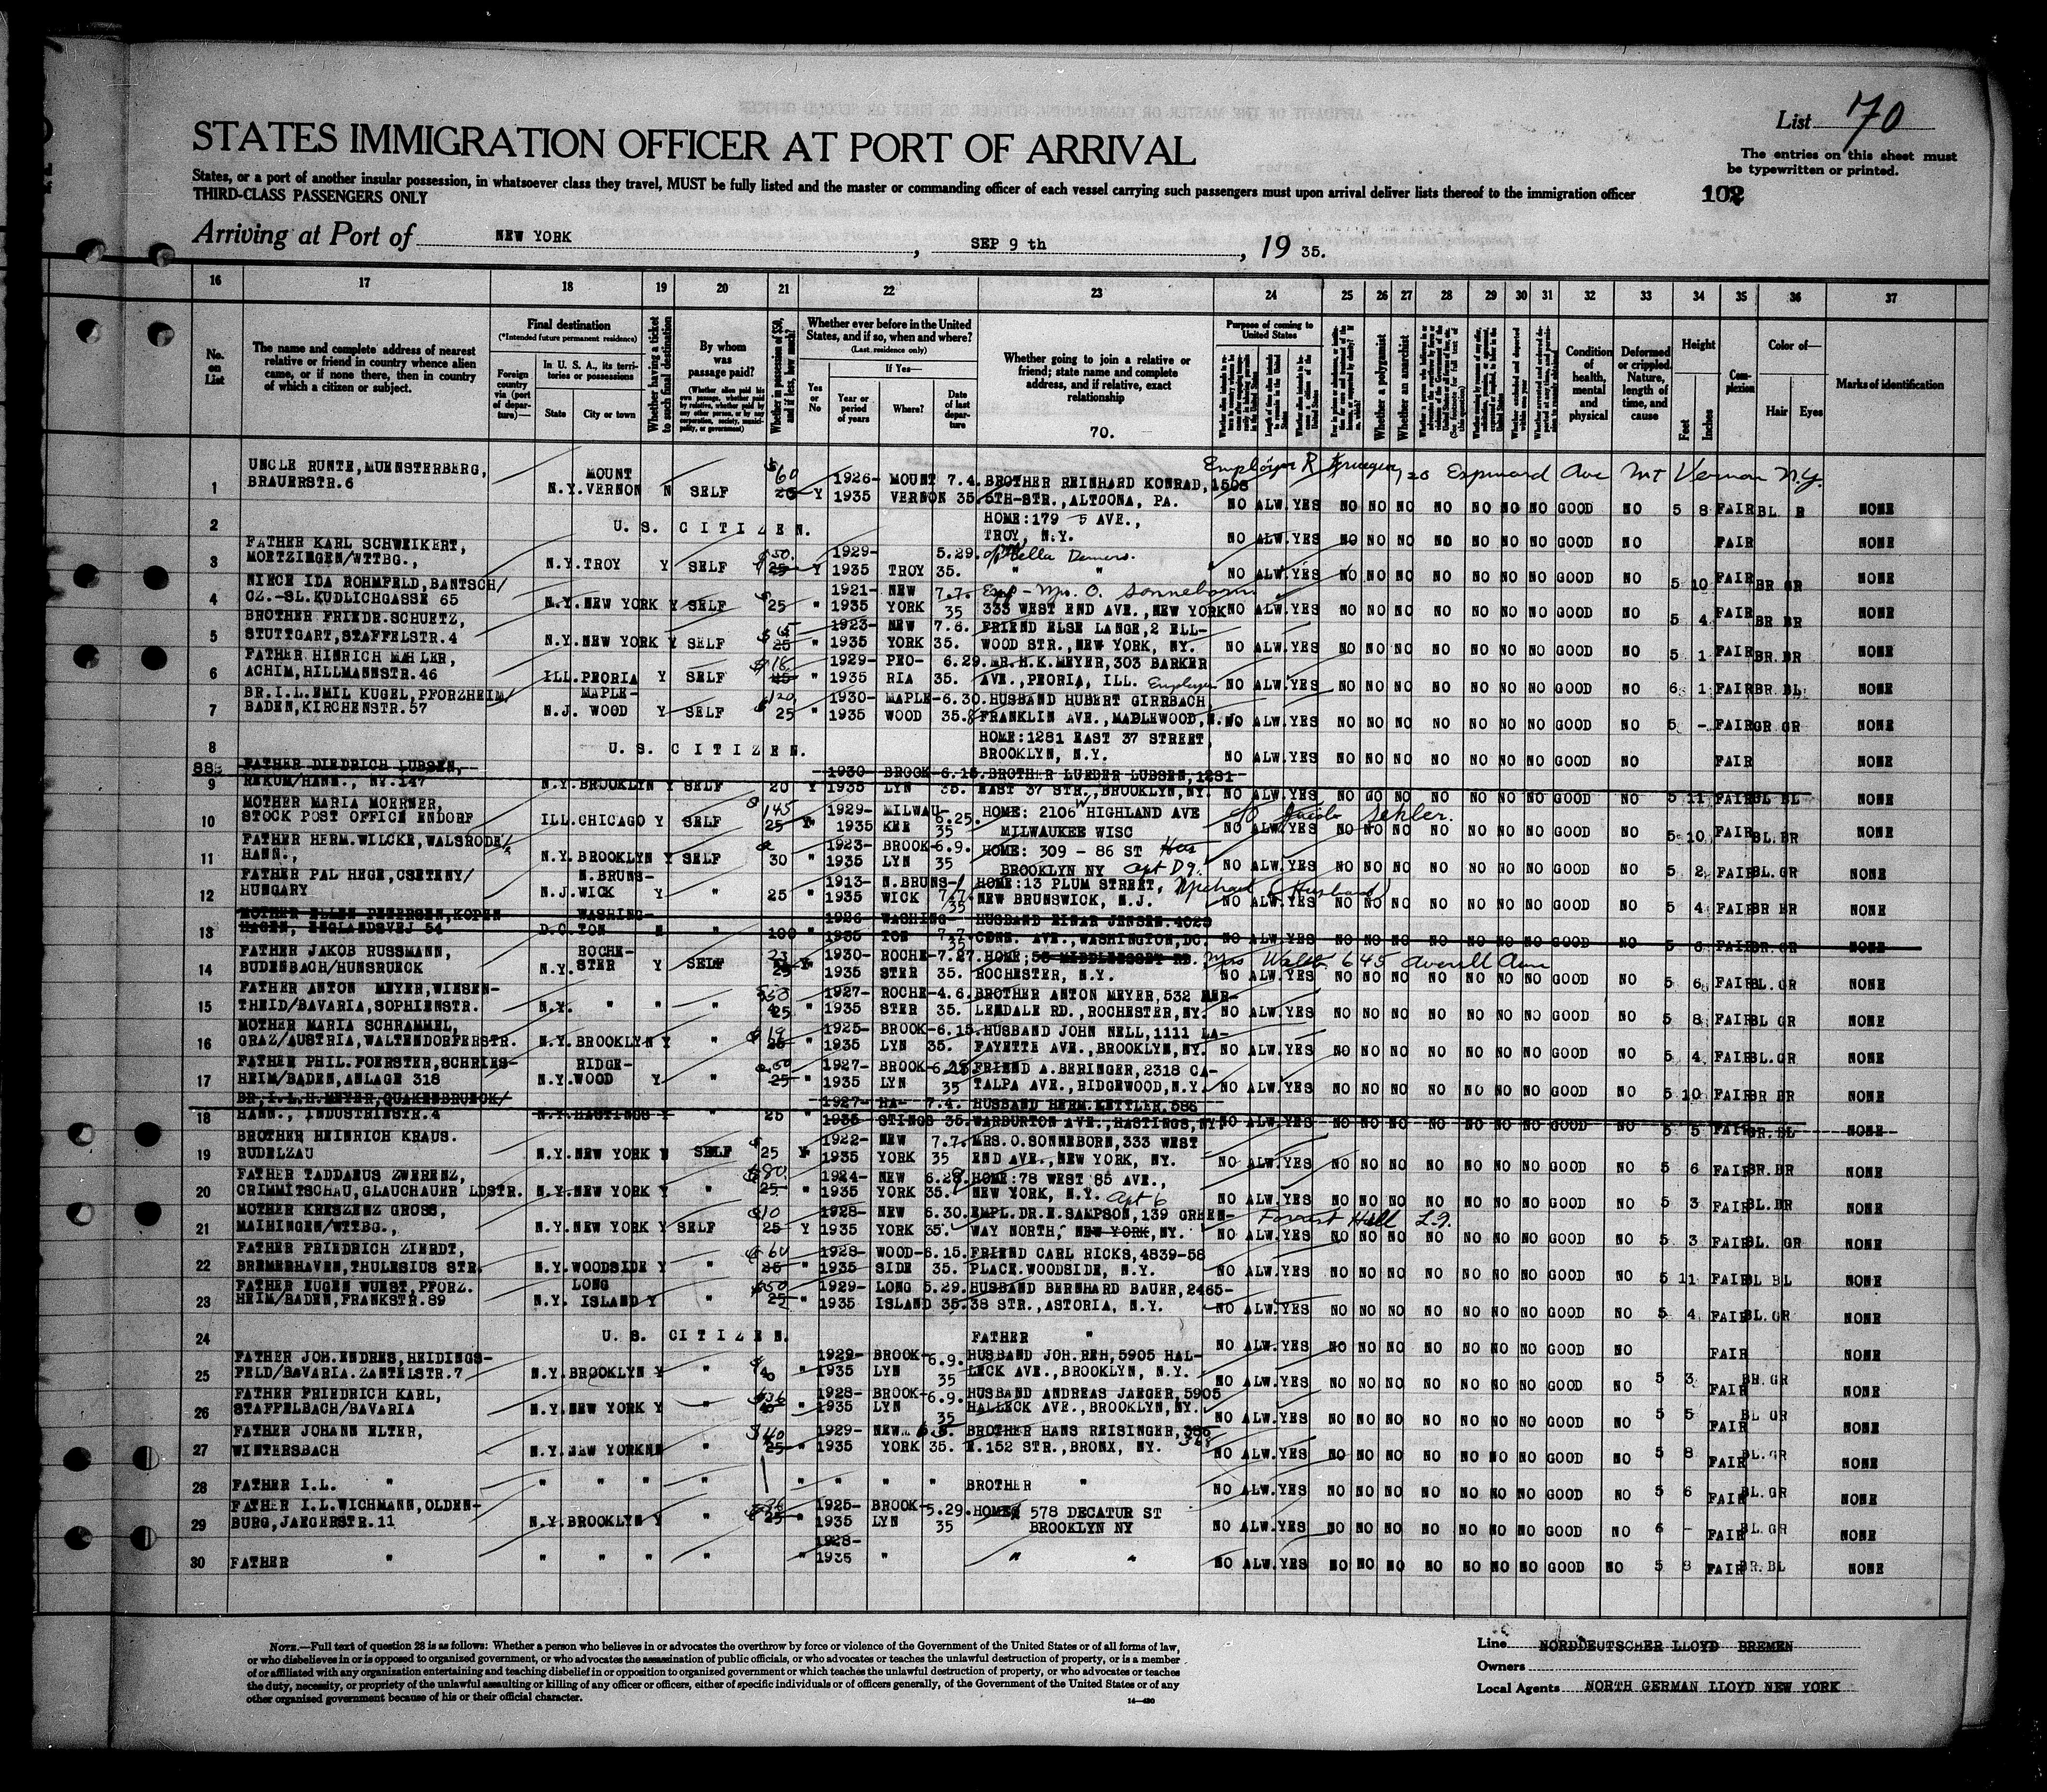 List 70
STATES IMMIGRATION OFFICER AT PORT OF ARRIVAL
The entries on this sheet must
be typewritten or printed.
States, or a port of another insular possession, in whatsoever class they travel, MUST be fully listed and the master or commanding officer of each vessel carrying such passengers must upon arrival deliver lists thereof to the immigration officer
THIRD-CLASS PASSENGERS ONLY
102
Arriving at Port of NEW YORK, SEP 9 th, 19 35.
16 17 18 19 20 21 22 23 24 25 26 27 28 29 30 31 32 33 34 35 36 37
No. on List
The name and complete address of nearest relative or friend in country whence alien came, or if none there, then in country of which a citizen or subject.
Final destination
(*Intended future permanent residence)
Foreign country via (port of departure)
In U. S. A., its territories or possessions
State
City or town
Whether having a ticket to such final destination
By whom was passage paid?
(Whether alien paid his own passage, whether paid by relative, whether paid by any other person, or by any corporation, society, municipality, or government)
Whether in possession of $50, and if less, how much?
Whether ever before in the United States, and if so, when and where?
(Last residence only)
Yes or No
If Yes—
Year or period of years
Where?
Date of last departure
Whether going to join a relative or friend; state name and complete address, and if relative, exact relationship
70.
Purpose of coming to United States
Whether a polygamist
Whether an anarchist
Condition of health, mental and physical
Deformed or crippled. Nature, length of time, and cause
Height
Feet
Inches
Complexion
Color of—
Hair
Eyes
Marks of identification
Employer R Krueger, 120 Espinard Ave Mt Vernon N.Y.
1 UNCLE RUNTE, MUENSTERBERG, MOUNT $60 1926- MOUNT 7.4. BROTHER REINHARD KONRAD, 1508
BRAUERSTR.6 N.Y. VERNON N SELF 25 Y 1935 VERNON 35. 5TH-STR., ALTOONA, PA. NO ALW. YES NO NO NO NO NO NO NO GOOD NO 5 8 FAIR BL. B NONE
2 U. S. CITIZEN. HOME: 179 5 AVE.,
TROY, N.Y. NO ALW. YES NO NO NO NO NO NO NO GOOD NO FAIR NONE
3 FATHER KARL SCHWEIKERT, $50. 1929- 5.29. Bella Demers.
MOETZINGEN/WTTBG., N.Y. TROY Y SELF 25 Y 1935 TROY 35. " " NO ALW. YES NO NO NO NO NO NO NO GOOD NO 5 10 FAIR BR GR NONE
4 NIECE IDA ROHMFELD, BANTSCH/ 1921- NEW 7.7. Emp - Mrs. O. Sonneborn
CZ.-SL. KUDLICHGASSE 65 N.Y. NEW YORK Y SELF 25 " 1935 YORK 35 333 WEST END AVE., NEW YORK NO ALW. YES NO NO NO NO NO NO NO GOOD NO 5 4 FAIR BR BR NONE
5 BROTHER FRIEDR. SCHUETZ, $65 1923- NEW 7.6. FRIEND ELSE LANGE, 2 ELL-
STUTTGART, STAFFELSTR.4 N.Y. NEW YORK Y SELF 25 " 1935 YORK 35. WOOD STR., NEW YORK, NY. NO ALW. YES NO NO NO NO NO NO NO GOOD NO 5 1 FAIR BR. BR NONE
6 FATHER HINRICH MAHLER, 1929- PEO- 6.29. MR. H.K. MEYER, 303 BARKER
ACHIM, HILLMANNSTR.46 ILL. PEORIA Y SELF 25 " 1935 RIA 35. AVE., PEORIA, ILL. Employer NO ALW. YES NO NO NO NO NO NO NO GOOD NO 6 1 FAIR BR. BL. NONE
7 BR. I.L. EMIL KUGEL, PFORZHEIM/ MAPLE- 120. 1930- MAPLE- 6.30. HUSBAND HUBERT GIRRBACH,
BADEN, KIRCHENSTR.57 N.J. WOOD Y SELF 25 " 1935 WOOD 35. FRANKLIN AVE., MAPLEWOOD, N. NO ALW. YES NO NO NO NO NO NO NO GOOD NO 5 - FAIR GR GR NONE
8 U. S. CITIZEN. HOME: 1281 EAST 37 STREET,
BROOKLYN, N.Y. NO ALW. YES NO NO NO NO NO NO NO GOOD NO FAIR NONE
9 FATHER DIEDRICH LUBSEN, 1930- BROOK- 6.15. BROTHER LUEDER LUBSEN, 1281
REKUM/HANN., NY.147 N.Y. BROOKLYN Y SELF 20 Y 1935 LYN 35. EAST 37 STR., BROOKLYN, NY. NO ALW. YES NO GO NO NO NO NO NO GOOD NO 5 11 FAIR BL BL NONE
10 MOTHER MARIA MOERNER, 145 1929- MILWAU- 6.25. HOME: 2106 W HIGHLAND AVE
STOCK POST OFFICE ENDORF ILL. CHICAGO Y SELF 25 Y 1935 KEE 35 MILWAUKEE WISC NO ALW. YES NO NO NO NO NO NO NO GOOD NO 5 10 FAIR BL. BR NONE
11 FATHER HERM. WILCKE, WALSRODE/ 1923- BROOK- 6.9. HOME: 309 - 86 ST
HANN., N.Y. BROOKLYN Y SELF 30 " 1935 LYN 35 BROOKLYN NY apt D9. NO ALW. YES NO NO NO NO NO NO NO GOOD NO 5 2 FAIR BL. GR NONE
12 FATHER PAL HEGE, CSETENY/ N.BRUNS- 1913- N.BRUNS- HOME: 13 PLUM STREET, Michael (Husband)
HUNGARY N.J. WICK Y " 25 " 1935 WICK 7/7. 35 NEW BRUNSWICK, N.J. NO ALW. YES NO NO NO NO NO NO NO GOOD NO 5 4 FAIR BR BR NONE
13 MOTHER ELLEN PETERSEN, KOPEN- WASHING- 1926 WASHING- HUSBAND EINAR JENSEN. 4029
HAGEN, ENGLANDSVEJ 54 D.C. TON N " 100 " 1935 TON 7.7. 35 CONN. AVE., WASHINGTON, DC. NO ALW. YES NO NO NO NO NO NO NO GOOD NO 5 6 FAIR BR. GR NONE
14 FATHER JAKOB RUSSMANN, ROCHE- 23 1930- ROCHE- 7.27. HOME; 56 MIDDLESSET RD. Mrs Walsh 645 Averill Ave
BUDENBACH/HUNSRUECK N.Y. STER Y SELF 25 Y 1935 STER 35. ROCHESTER, N.Y. NO ALW. YES NO NO NO NO NO NO NO GOOD NO 5 6 FAIR BL. GR NONE
15 FATHER ANTON MEYER, WIESEN- 1927- ROCHE- 4.6. BROTHER ANTON MEYER, 532 MER-
THEID/BAVARIA, SOPHIENSTR. N.Y. " " " 25 " 1935 STER 35. LENDALE RD., ROCHESTER, NY. NO ALW. YES NO NO NO NO NO NO NO GOOD NO 5 8 FAIR BL GR NONE
16 MOTHER MARIA SCHRAMMEL, 1925- BROOK- 6.15. HUSBAND JOHN NELL, 1111 LA-
GRAZ/AUSTRIA, WALTENDORFERSTR. N.Y. BROOKLYN Y " 25 " 1935 LYN 35. FAYETTE AVE., BROOKLYN, NY. NO ALW. YES NO NO NO NO NO NO NO GOOD NO 5 4 FAIR BL. GR NONE
17 FATHER PHIL. FOERSTER, SCHRIES- RIDGE- 50 1927- BROOK- 6.25. FRIEND A. BERINGER, 2318 CA-
HEIM/BADEN, ANLAGE 318 N.Y. WOOD Y " 25 " 1935 LYN 35 TALPA AVE., RIDGEWOOD, N.Y. NO ALW. YES NO NO NO NO NO NO NO GOOD NO 5 10 FAIR BR BR NONE
18 BR. I.L. H. MEYER, QUAKENBRUECK/ 1927- HA- 7.4. HUSBAND HERM. KETTLER, 586
HANN., INDUSTRIESTR.4 N.Y. HASTINGS Y " 25 " 1935 STINGS 35. WARBURTON AVE., HASTINGS, NY. NO ALW. YES NO NO NO NO NO NO NO GOOD NO 5 5 FAIR GR. BL NONE
19 BROTHER HEINRICH KRAUS. 1922- NEW 7.7. MRS. O. SONNEBORN, 333 WEST
RUDELZAU N.Y. NEW YORK N SELF 25 Y 1935 YORK 35 END AVE., NEW YORK, NY. NO ALW. YES NO NO NO NO NO NO NO GOOD NO 5 6 FAIR BR. BR NONE
20 FATHER TADDAEUS ZWERENZ, $80. 1924- NEW 6.28. HOME: 78 WEST 85 AVE.,
CRIMMITSCHAU, GLAUCHAUER LDSTR. N.Y. NEW YORK Y " 25 " 1935 YORK 35. NEW YORK, N.Y. Apt 6 NO ALW. YES NO NO NO NO NO NO NO GOOD NO 5 3 FAIR BL. BR NONE
21 MOTHER KRESZENZ GROSS, $10 1928- NEW 6.30. EMPL. DR. E. SAMPSON, 139 GREEN- Forrest Hill L.I.
MAIHINGEN/WTTBG., N.Y. NEW YORK Y SELF 25 Y 1935 YORK 35. WAY NORTH, NEW YORK, NY. NO ALW. YES NO NO NO NO NO NO NO GOOD NO 5 3 FAIR BL. GR NONE
22 FATHER FRIEDRICH ZIERDT, 60 1928- WOOD- 6.15. FRIEND CARL RICKS, 4839-58
BREMERHAVEN, THULESIUS STR. N.Y. WOODSIDE Y " 25 " 1935 SIDE 35. PLACE. WOODSIDE, N.Y. NO ALW. YES NO NO NO NO NO NO NO GOOD NO 5 11 FAIR BL BL NONE
23 FATHER EUGEN WUEST, PFORZ. LONG $50 1929- LONG 5.29. HUSBAND BERNHARD BAUER, 2465-
HEIM/BADEN, FRANKSTR.89 N.Y. ISLAND Y " 25 " 1935 ISLAND 35. 38 STR., ASTORIA, N.Y. NO ALW. YES NO NO NO NO NO NO NO GOOD NO 5 4 FAIR BL. GR NONE
24 U. S. CITIZEN. FATHER " NO ALW. YES NO NO NO NO NO NO NO GOOD NO FAIR NONE
25 FATHER JOH. ENDRES, HEIDINGS- 1929- BROOK- 6.9. HUSBAND JOH. REH, 5905 HAL-
FELD/BAVARIA. ZANTELSTR.7 N.Y. BROOKLYN Y " " 1935 LYN 35 LECK AVE., BROOKLYN, N.Y. NO ALW. YES NO NO NO NO NO NO NO GOOD NO 5 3 FAIR BR. GR NONE
26 FATHER FRIEDRICH KARL, 1928- BROOK- 6.9. HUSBAND ANDREAS JAEGER, 5905
STAFFELBACH/BAVARIA N.Y. NEW YORK Y " " 1935 LYN 35 HALLECK AVE., BROOKLYN, NY. NO ALW. YES NO NO NO NO NO NO NO GOOD NO 5 5 FAIR BL GR NONE
27 FATHER JOHANN ELTER, 40 1929- NEW BROTHER HANS REISINGER,
WINTERSBACH N.Y. NEW YORK " 25 " 1935 YORK 35. E.152 STR., BRONX, NY. NO ALW. YES NO NO NO NO NO NO NO GOOD NO 5 8 FAIR BL. GR NONE
28 FATHER I.L. " " " " " " " " " BROTHER " NO ALW. YES NO NO NO NO NO NO NO GOOD NO 5 6 FAIR BL. GR NONE
29 FATHER I.L. WICHMANN, OLDEN- 1925- BROOK- 5.29. HOME 578 DECATUR ST
BURG, JAEGERSTR.11 N.Y. BROOKLYN Y " 25 " 1935 LYN 35 BROOKLYN NY NO ALW. YES NO NO NO NO NO NO NO GOOD NO 6 - FAIR BL. GR NONE
30 FATHER " " " " " " 1928-
1935 " " " NO ALW. YES NO NO NO NO NO NO NO GOOD NO 5 8 FAIR BR. BL NONE
NOTE.—Full text of question 28 is as follows: Whether a person who believes in or advocates the overthrow by force or violence of the Government of the United States or of all forms of law,
or who disbelieves in or is opposed to organized government, or who advocates the assassination of public officials, or who advocates or teaches the unlawful destruction of property, or is a member
of or affiliated with any organization entertaining and teaching disbelief in or opposition to organized government or which teaches the unlawful destruction of property, or who advocates or teaches
the duty, necessity, or propriety of the unlawful assaulting or killing of any officer or officers, either of specific individuals or of officers generally, of the Government of the United States or of any
other organized government because of his or their official character.
14—430
Line NORDDEUTSCHER LLOYD BREMEN
Owners
Local Agents NORTH GERMAN LLOYD NEW YORK